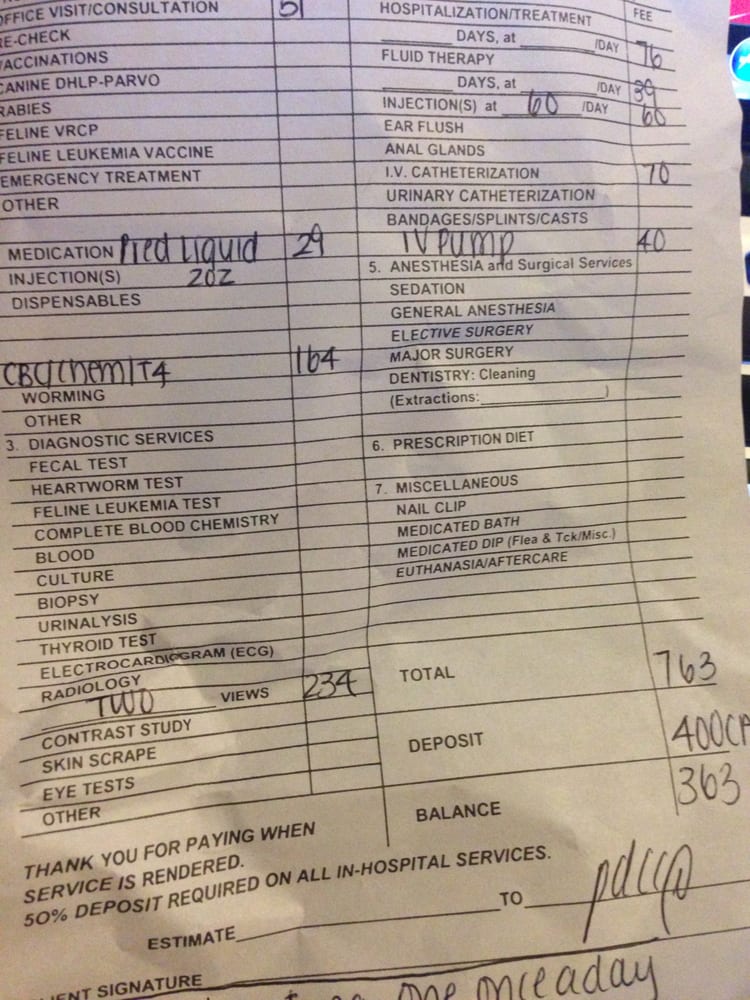 OFFICE VISIT/CONSULTATION 51
RE-CHECK
VACCINATIONS
CANINE DHLP-PARVO
RABIES
FELINE VRCP
FELINE LEUKEMIA VACCINE
EMERGENCY TREATMENT
OTHER
MEDICATION Pred Liquid 29
INJECTION(S) 2oz
DISPENSABLES
CBC/Chem/T4 164
WORMING
OTHER
3. DIAGNOSTIC SERVICES
FECAL TEST
HEARTWORM TEST
FELINE LEUKEMIA TEST
COMPLETE BLOOD CHEMISTRY
BLOOD
CULTURE
BIOPSY
URINALYSIS
THYROID TEST
ELECTROCARDIOGRAM (ECG)
RADIOLOGY
TWO VIEWS 234
CONTRAST STUDY
SKIN SCRAPE
EYE TESTS
OTHER
HOSPITALIZATION/TREATMENT FEE
DAYS, at /DAY 76
FLUID THERAPY
DAYS, at /DAY 39
INJECTION(S) at 60 /DAY 60
EAR FLUSH
ANAL GLANDS
I.V. CATHETERIZATION 70
URINARY CATHETERIZATION
BANDAGES/SPLINTS/CASTS
IV PUMP 40
5. ANESTHESIA and Surgical Services
SEDATION
GENERAL ANESTHESIA
ELECTIVE SURGERY
MAJOR SURGERY
DENTISTRY: Cleaning
(Extractions: )
6. PRESCRIPTION DIET
7. MISCELLANEOUS
NAIL CLIP
MEDICATED BATH
MEDICATED DIP (Flea & Tck/Misc.)
EUTHANASIA/AFTERCARE
TOTAL 763
DEPOSIT 400
BALANCE 363
THANK YOU FOR PAYING WHEN
SERVICE IS RENDERED.
50% DEPOSIT REQUIRED ON ALL IN-HOSPITAL SERVICES.
ESTIMATE TO
SIGNATURE
one once a day